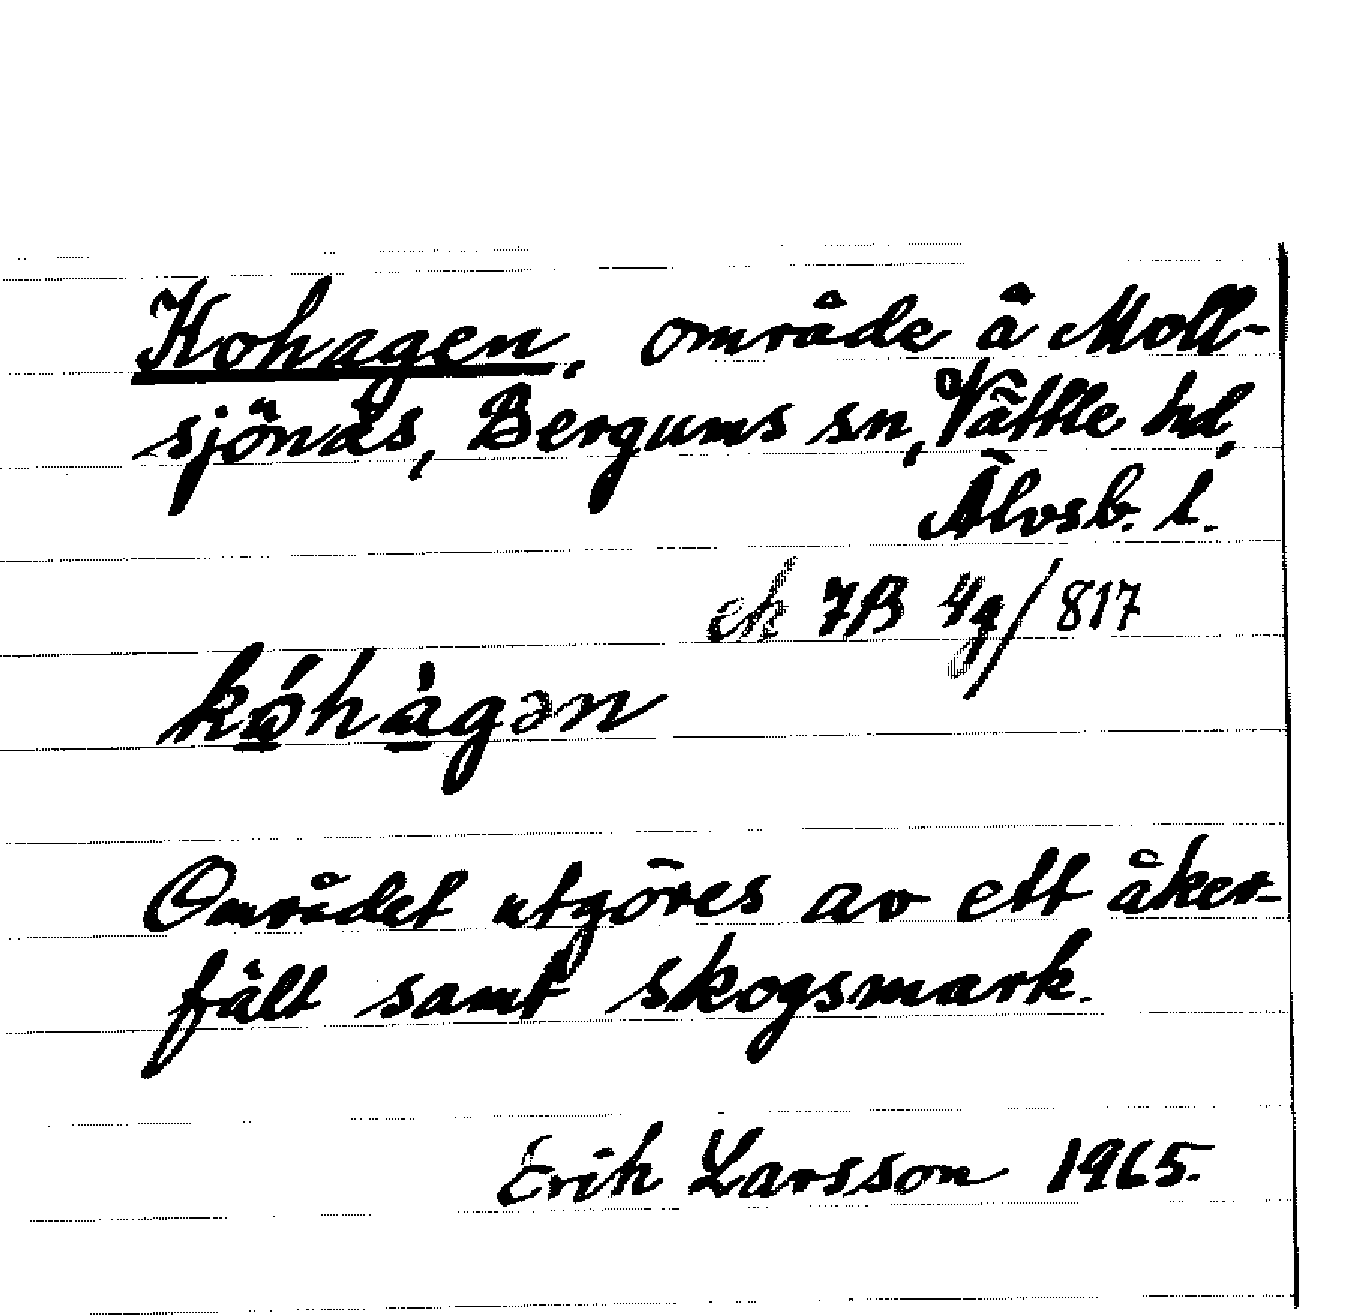 Kohagen, område å Moll-
sjönäs, Bergums sn, Vättle hd,
Älvsb. l.
ek 7B 4g/817
kǿhàgən
Området utgöres av ett åker-
fält samt skogsmark.
Erik Larsson 1965.